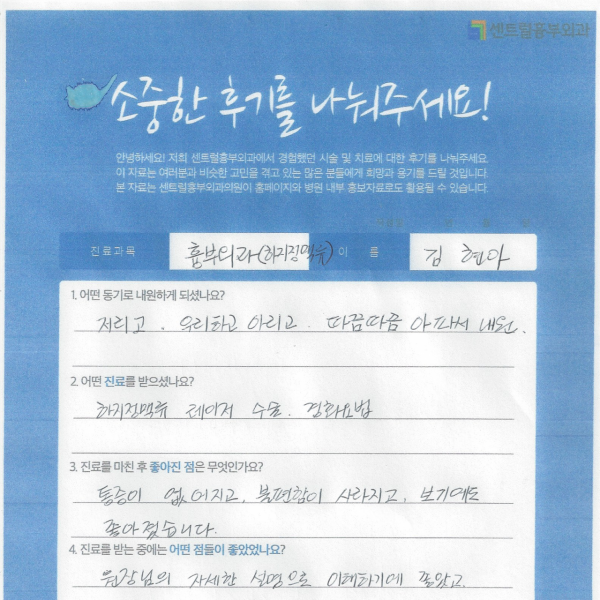 센트럴흉부외과
소중한 후기를 나눠주세요!
안녕하세요! 저희 센트럴흉부외과에서 경험했던 시술 및 치료에 대한 후기를 나눠주세요.
이 자료는 여러분과 비슷한 고민을 겪고 있는 많은 분들에게 희망과 용기를 드릴 것입니다.
본 자료는 센트럴흉부외과의원이 홈페이지와 병원 내부 홍보자료로도 활용될 수 있습니다.
진료과목 흉부외과(하지정맥류) 이 름 김 현아
1. 어떤 동기로 내원하게 되셨나요?
저리고, 우리하고 아리고. 따끔따끔 아파서 내원.
2. 어떤 진료를 받으셨나요?
하지정맥류 레이저 수술. 경화요법
3. 진료를 마친 후 좋아진 점은 무엇인가요?
통증이 없어지고, 불편함이 사라지고, 보기에도
좋아졌습니다.
4. 진료를 받는 중에는 어떤 점들이 좋았었나요?
원장님의 자세한 설명으로 이해하기에 좋았고.